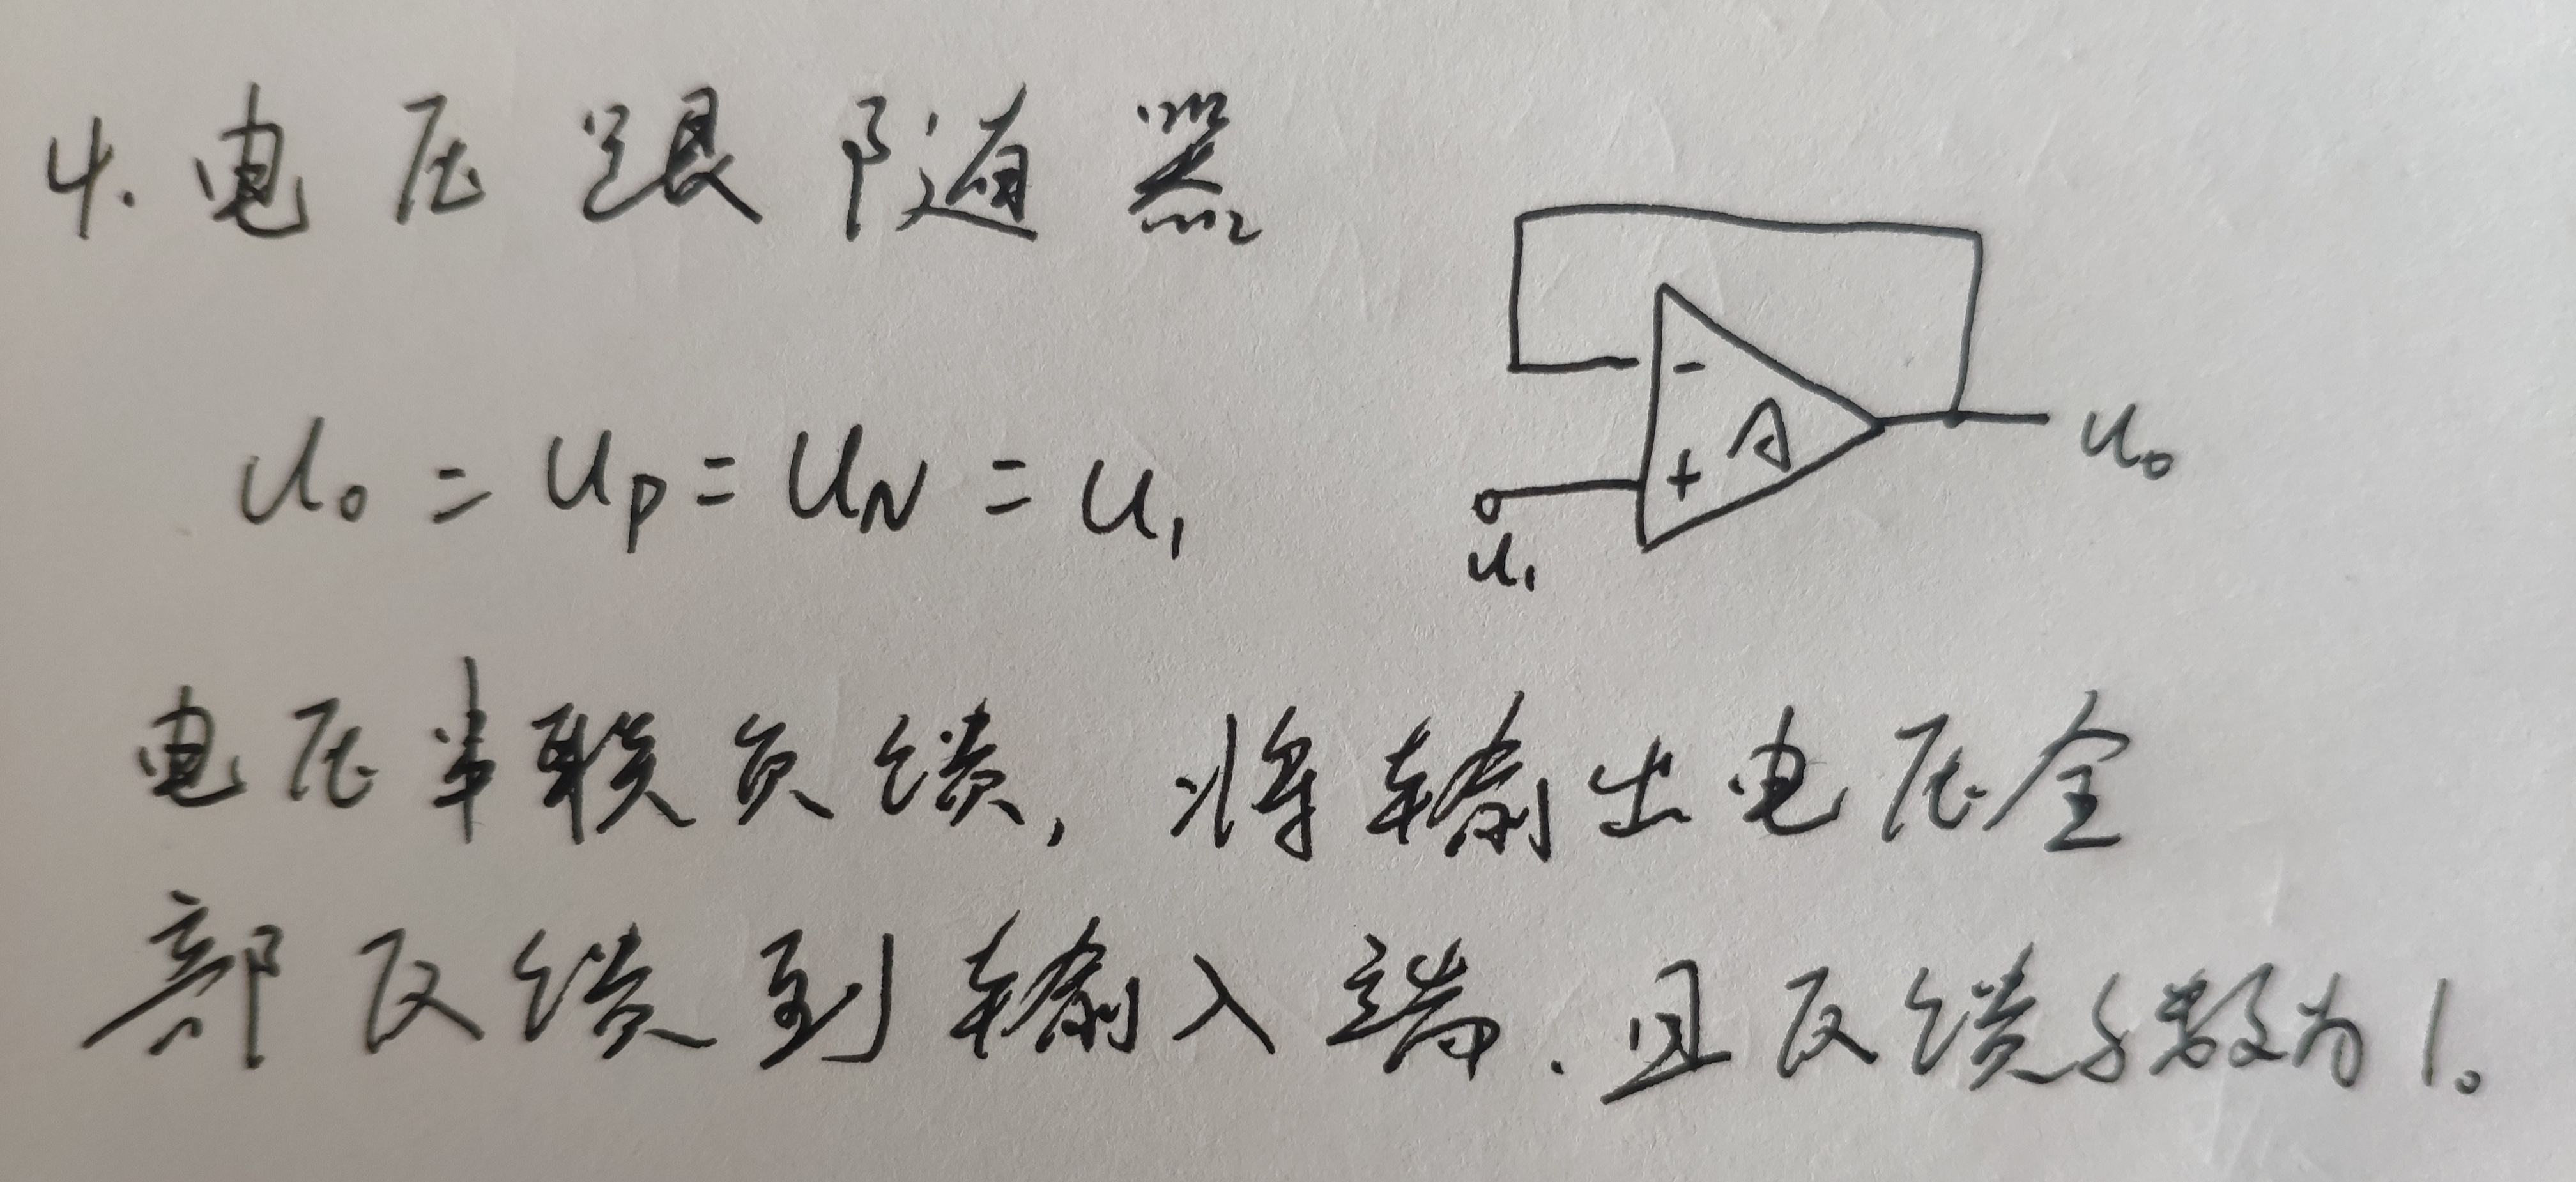 4. 电压跟随器
u₀ = u_P = u_N = u₁
- A
+
u₀
u₁
电压串联负馈, 将输出电压全
部反馈到输入端. 且反馈系数为1。